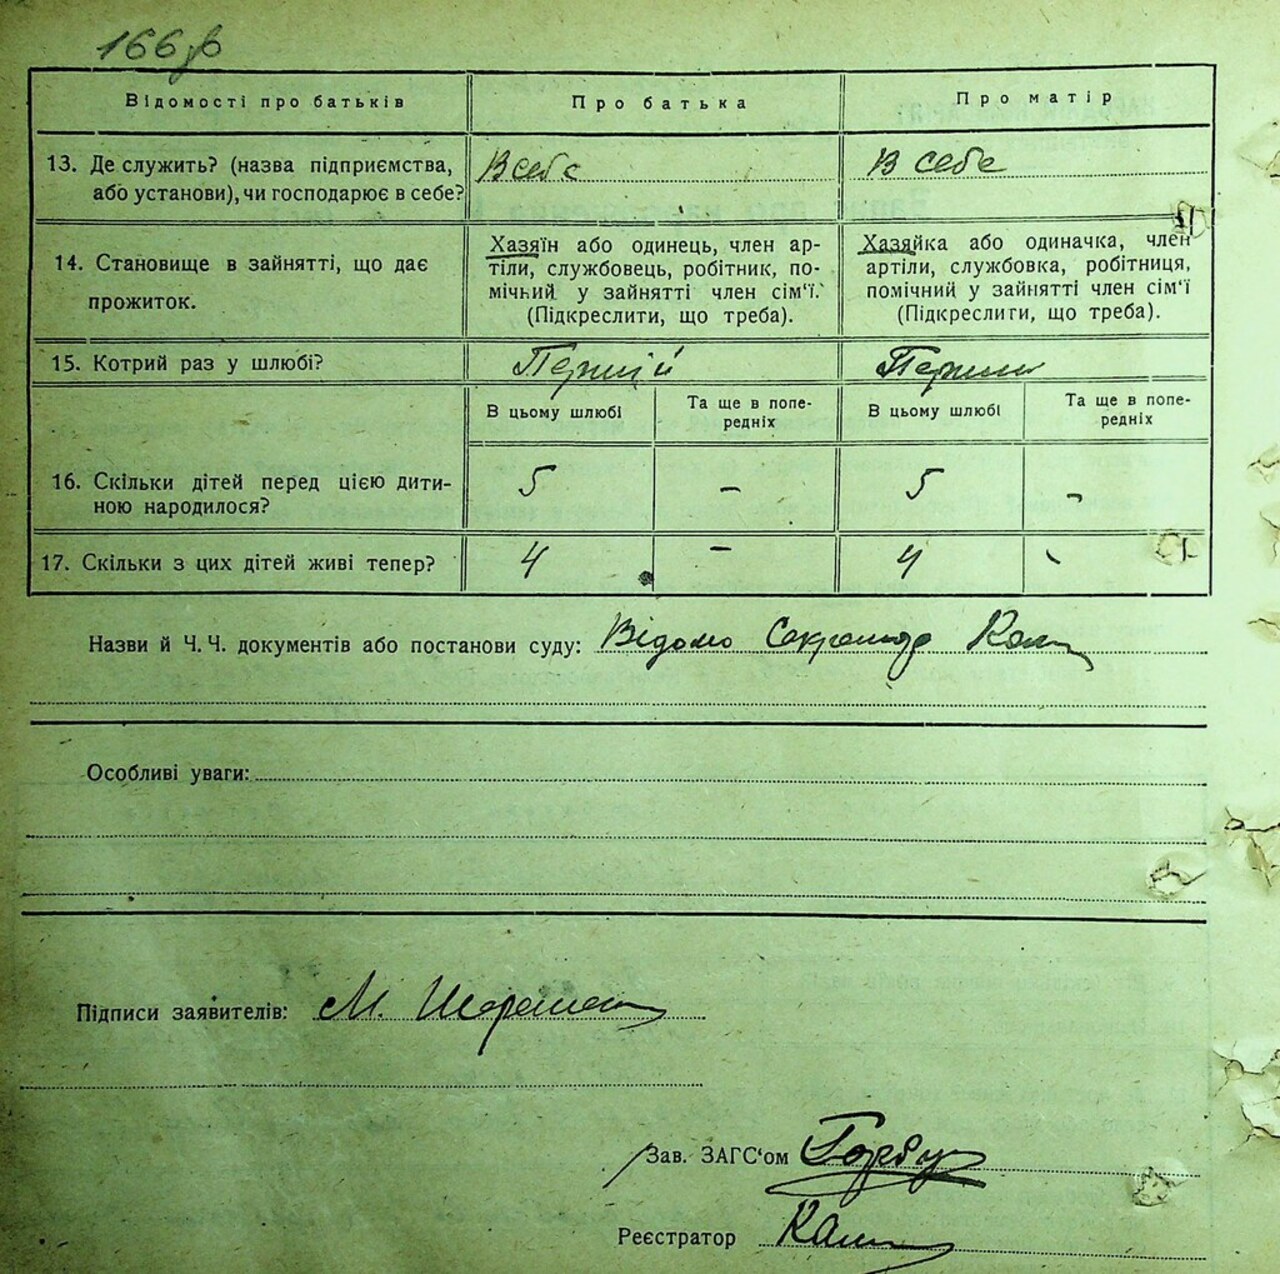 166
Відомості про батьків
Про батька
Про матір
13. Де служить? (назва підприємства,
або установи), чи господарює в себе?
В себе
В себе
14. Становище в зайнятті, що дає
прожиток.
Хазяїн або одинець, член ар-
тіли, службовець, робітник, по-
мічний у зайнятті член сім'ї.
(Підкреслити, що треба).
Хазяйка або одиначка, член
артіли, службовка, робітниця,
помічний у зайнятті член сім'ї
(Підкреслити, що треба).
15. Котрий раз у шлюбі?
Перший
В цьому шлюбі
Та ще в попе-
редніх
В цьому шлюбі
Та ще в попе-
редніх
16. Скільки дітей перед цією дити-
ною народилося?
5 – 5 –
17. Скільки з цих дітей живі тепер?
4 – 4
Назви й Ч. Ч. документів або постанови суду: Відомо
Особливі уваги:
Підписи заявителів: М.
Зав. ЗАГС'ом
Реєстратор